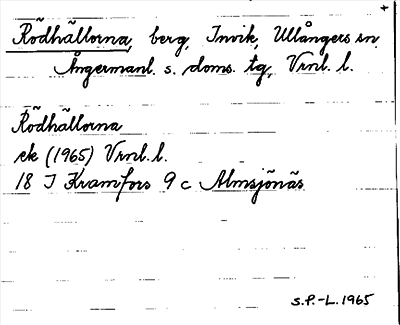 +
Rödhällorna, berg, Invik, Ullångers sn
Ångermanl. s. doms. tg, Vrnl. l.
Rödhällorna
ek (1965) Vrnl. l.
18 I Kramfors 9 c Almsjönäs
S.P.-L. 1965